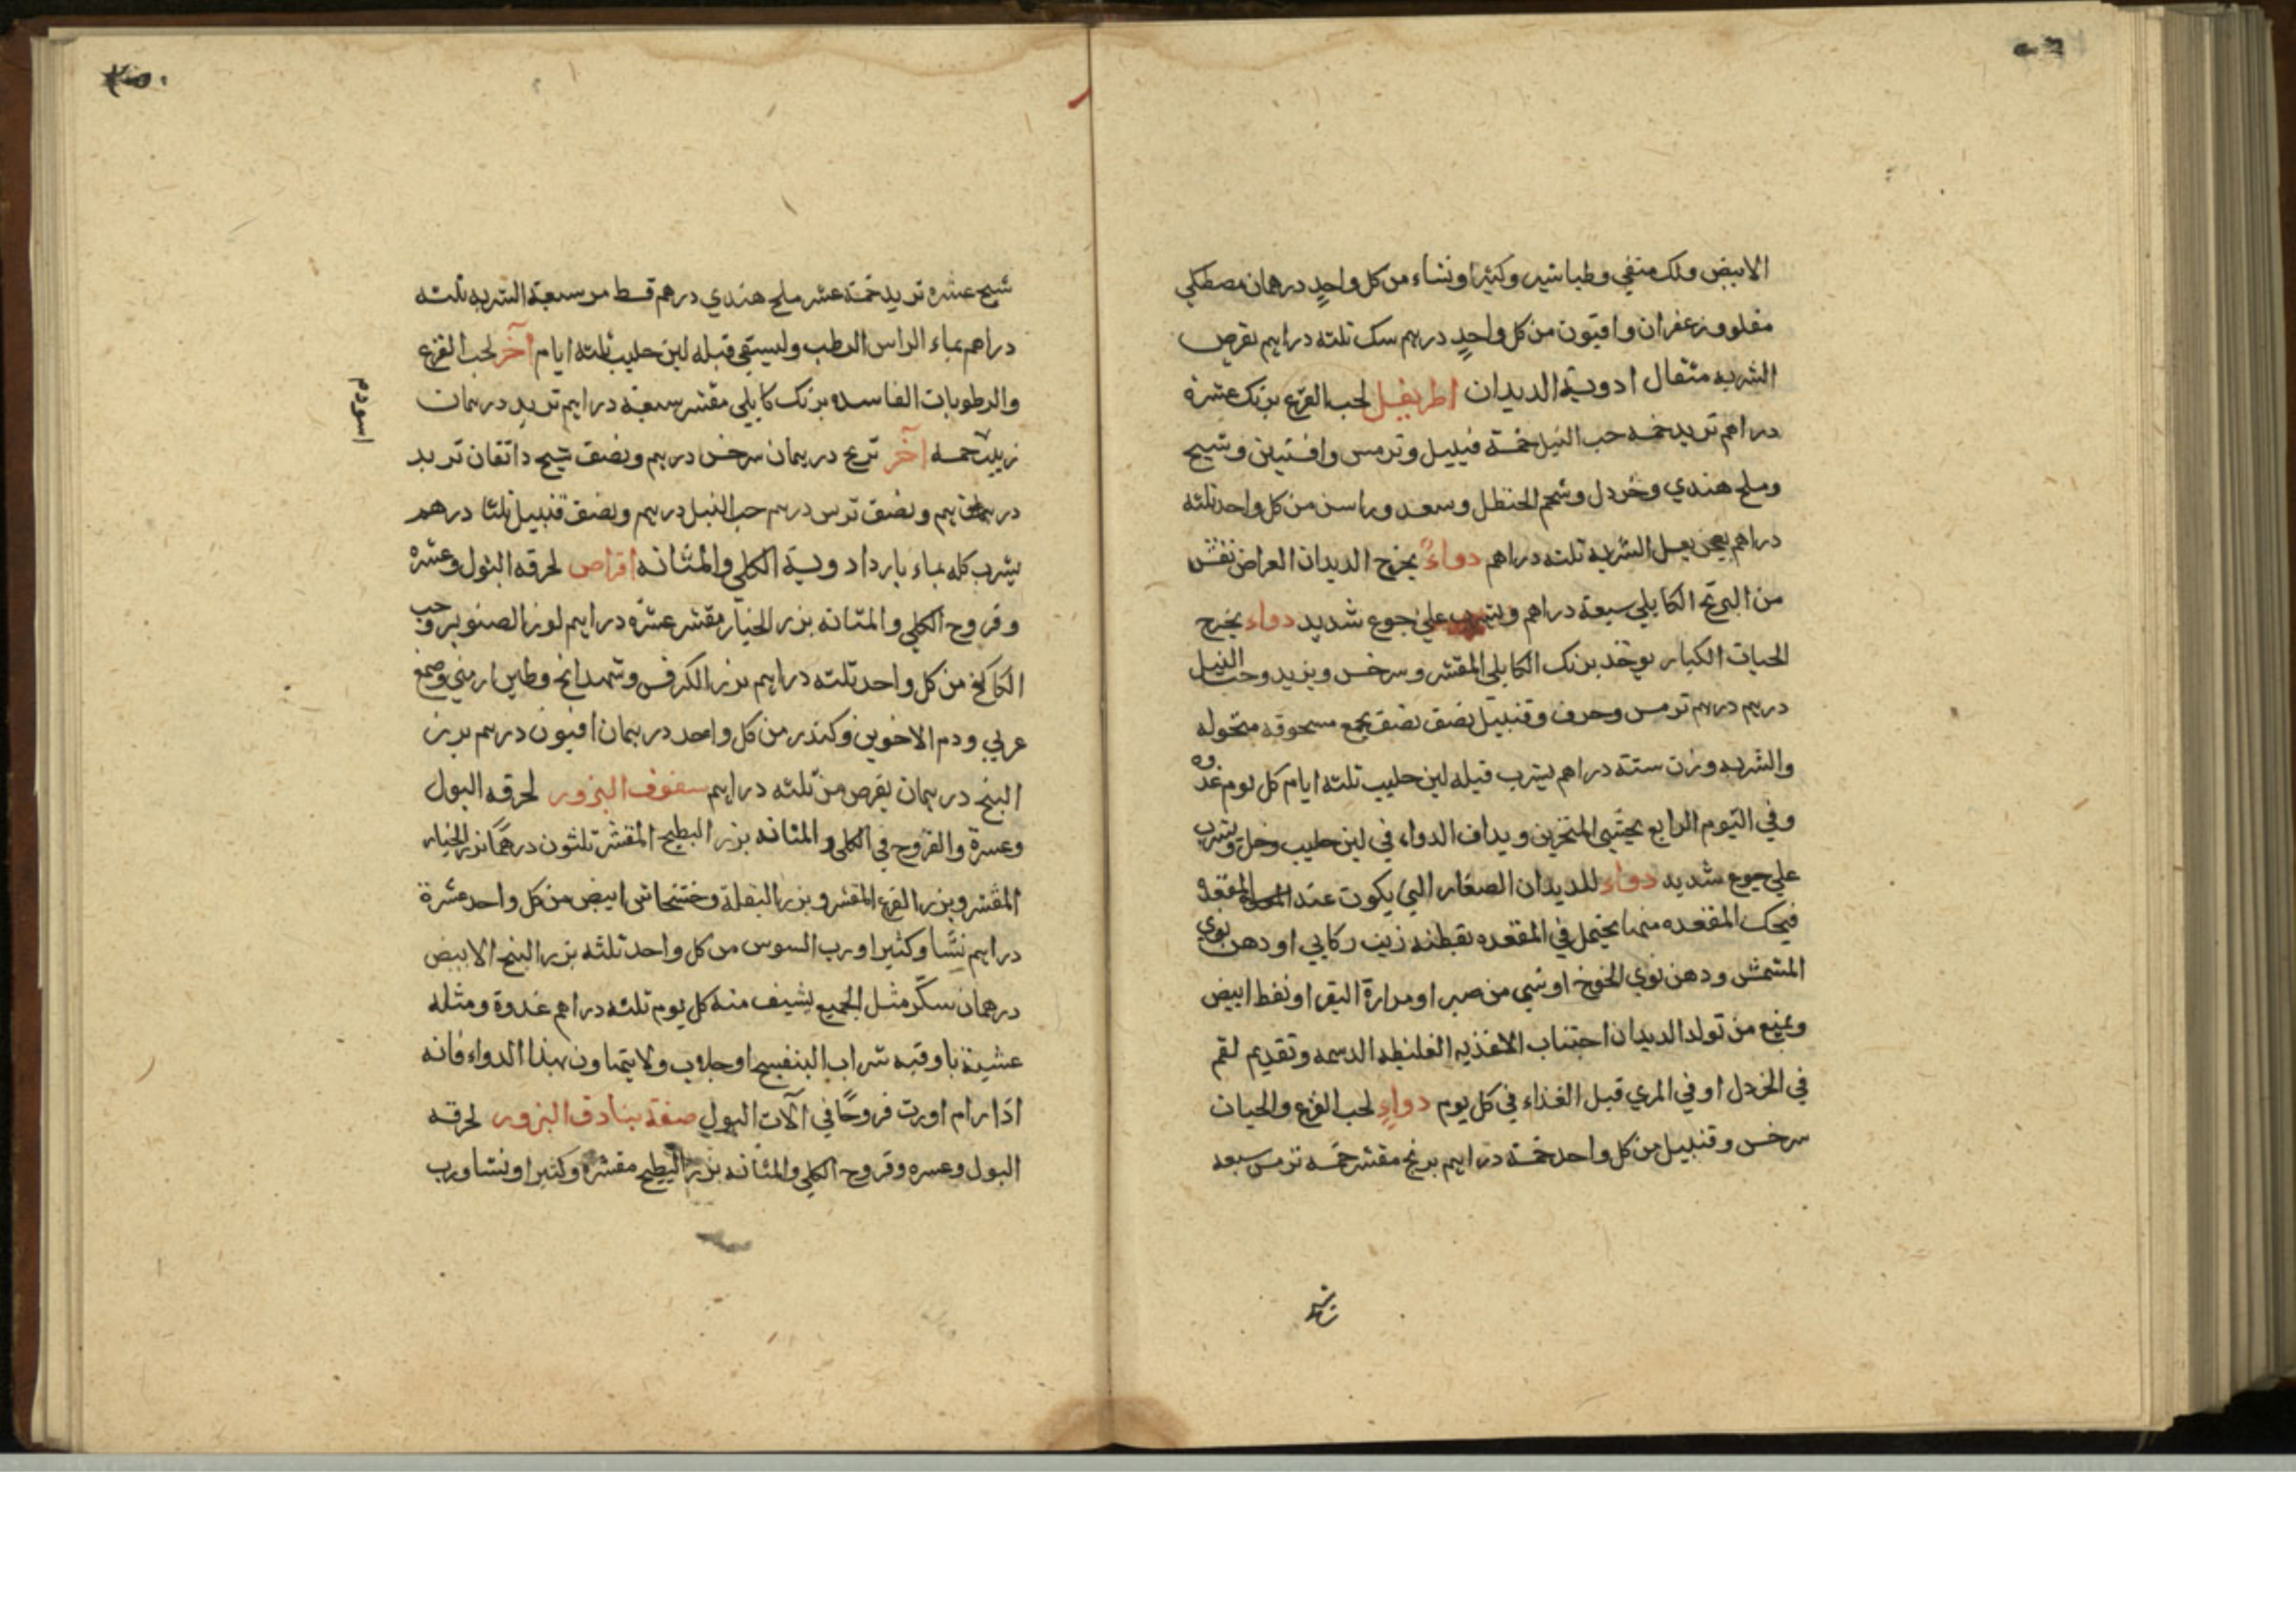 الابيض ولك منقي وطباشير وكثيرا ونشاء من كل واحدٍ درهمان مصطكي
مقلو وزعفران وافيون من كل واحدٍ درهم سك ثلثه دراهم يقرص
الشربه مثقال ادوية الديدان اطريفل لحب القرع برنك عشرة
دراهم تربد خمسه حب النيل خمسة قنبيل وترمس وافسنتين وشيح
وملح هندي وخردل وشحم الحنظل وسعد وراسن من كل واحد ثلثه
دراهم يعجن بعسل الشربه ثلثه دراهم دواءٌ يخرج الديدان العراض
من البرنج الكابلي سبعة دراهم ويشرب علي جوع شديد دواء يخرج
الحيات الكبار يوخذ برنك الكابلي المقشر وسرخس وحب النيل
درهم درهم ترمس وحرف وقنبيل نصف نصف يجمع مسحوقه منخوله
والشربه وزن ستة دراهم يشرب قبله لبن حليب ثلثه ايام كل يوم غدوه
وفي اليوم الرابع المنخرين ويداف الدواء في لبن حليب وخل ويشرب
علي جوع شديد دواء للديدان الصغار التي يكون عند المقعده
فيحك المقعده منها يحتمل في المقعده بقطنه زيت ركابي او دهن نوي
المشمش ودهن نوي الخوخ او شي من صبر او مرارة البقر او نفط ابيض
ويمنع من تولد الديدان اجتناب الاغذيه الغليظه الدسمه وتقديم لقم
في الخردل او في المري قبل الغذاء في كل يوم دواءٍ لحب القرع والحيات
سرخس وقنبيل من كل واحد خمسة دراهم برنج مقشر خمسه ترمس سبعه
شيح
شيح عشره تربد خمسة عشر ملح هندي درهم قسط مر سبعة الشربه ثلثه
دراهم بماء الراس الرطب وليسقي قبله لبن حليب ثلثه ايام آخر لحب القرع
والرطوبات الفاسده برنك كابلي مقشر سبعة دراهم تربد درهمان
زبيب خمسه آخر ترنج درهمان سرخس درهم ونصف شيح دانقان تربد
ونصف ترمس درهم حب النيل درهم ونصف قنبيل ثلثا درهم
يشرب كله بماء بارد ادوية الكلي والمثانه اقراص لحرقه البول وعسره
وقروح الكلي والمثانه بزر الخيار مقشر عشره دراهم لوز الصنوبر وحب
الكاكنج من كل واحد ثلثه دراهم بزر الكرفس وشهدانج وطين ارمني وصمغ
عربي ودم الاخوين وكندر من كل واحد درهمان افيون درهم بزر
البنج درهمان يقرص من ثلثه دراهم سفوف البزور لحرقه البول
وعسرة والقروح في الكلي والمثانه بزر البطيخ المقشر ثلثون درهمًا بزر الخيار
المقشر وبزر القرع المقشر وبزر البقلة وخشخاش ابيض من كل واحد عشرة
دراهم نشا وكثيرا ورب السوس من كل واحد ثلثه بزر البنج الابيض
درهمان سكّر مثل الجميع يشيف منه كل يوم ثلثه دراهم غدوة ومثله
عشية باوقيه شراب البنفسج او جلاب ولا يتهاون بهذا الدواء فانه
اذا رام اورث قروحًا في آلات البول صفة بنادق البزور لحرقه
البول وعسره وقروح الكلي والمثانه بزر البطيخ مقشره وكثيرا ونشا ورب